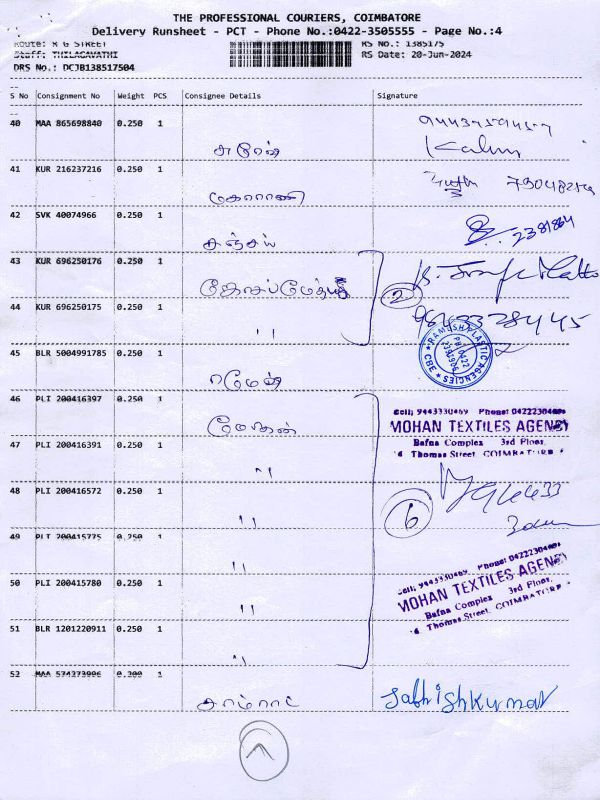 THE PROFESSIONAL COURIERS, COIMBATORE
Delivery Runsheet - PCT - Phone No.:0422-3505555 - Page No.:4
Route: R G STREET
RS No.: 1385175
Staff: THILAGAVATHI
RS Date: 20-Jun-2024
DRS No.: DCJB138517504
S No Consignment No Weight PCS Consignee Details Signature
40 MAA 865698840 0.250 1
சுரேஷ்
41 KUR 216237216 0.250 1
மகாராணி
42 SVK 40074966 0.250 1
சஞ்சய்
2381864
43 KUR 696250176 0.250 1
2
44 KUR 696250175 0.250 1
"
45 BLR 5004991785 0.250 1
ரமேஷ்
RAMESH PLASTIC AGENCIES
CBE
46 PLI 200416397 0.250 1
மோகன்
MOHAN TEXTILES AGENCY
Bafna Complex 3rd Floor,
Thomas Street, COIMBATORE
47 PLI 200416391 0.250 1
"
48 PLI 200416572 0.250 1
"
6
49 PLI 200415775 0.250 1
"
50 PLI 200415780 0.250 1
"
MOHAN TEXTILES AGENCY
Bafna Complex 3rd Floor,
Thomas Street, COIMBATORE
51 BLR 1201220911 0.250 1
"
52 MAA 574273996 0.200 1
சாம்ராட்
Sathishkumar